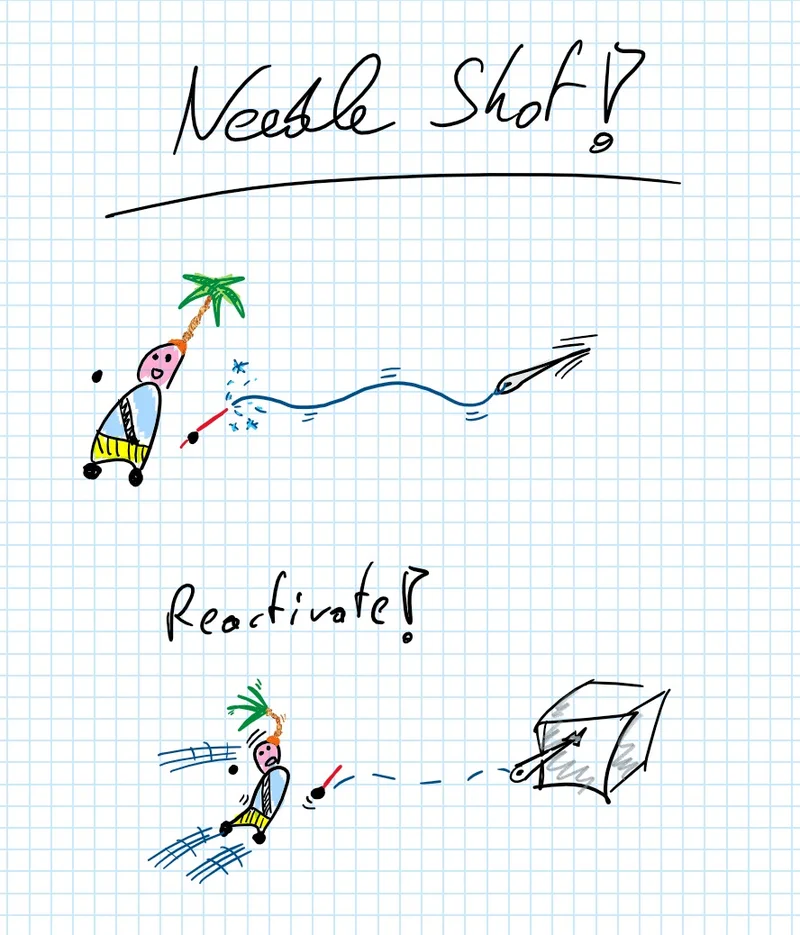 Needle Shot!
Reactivate!